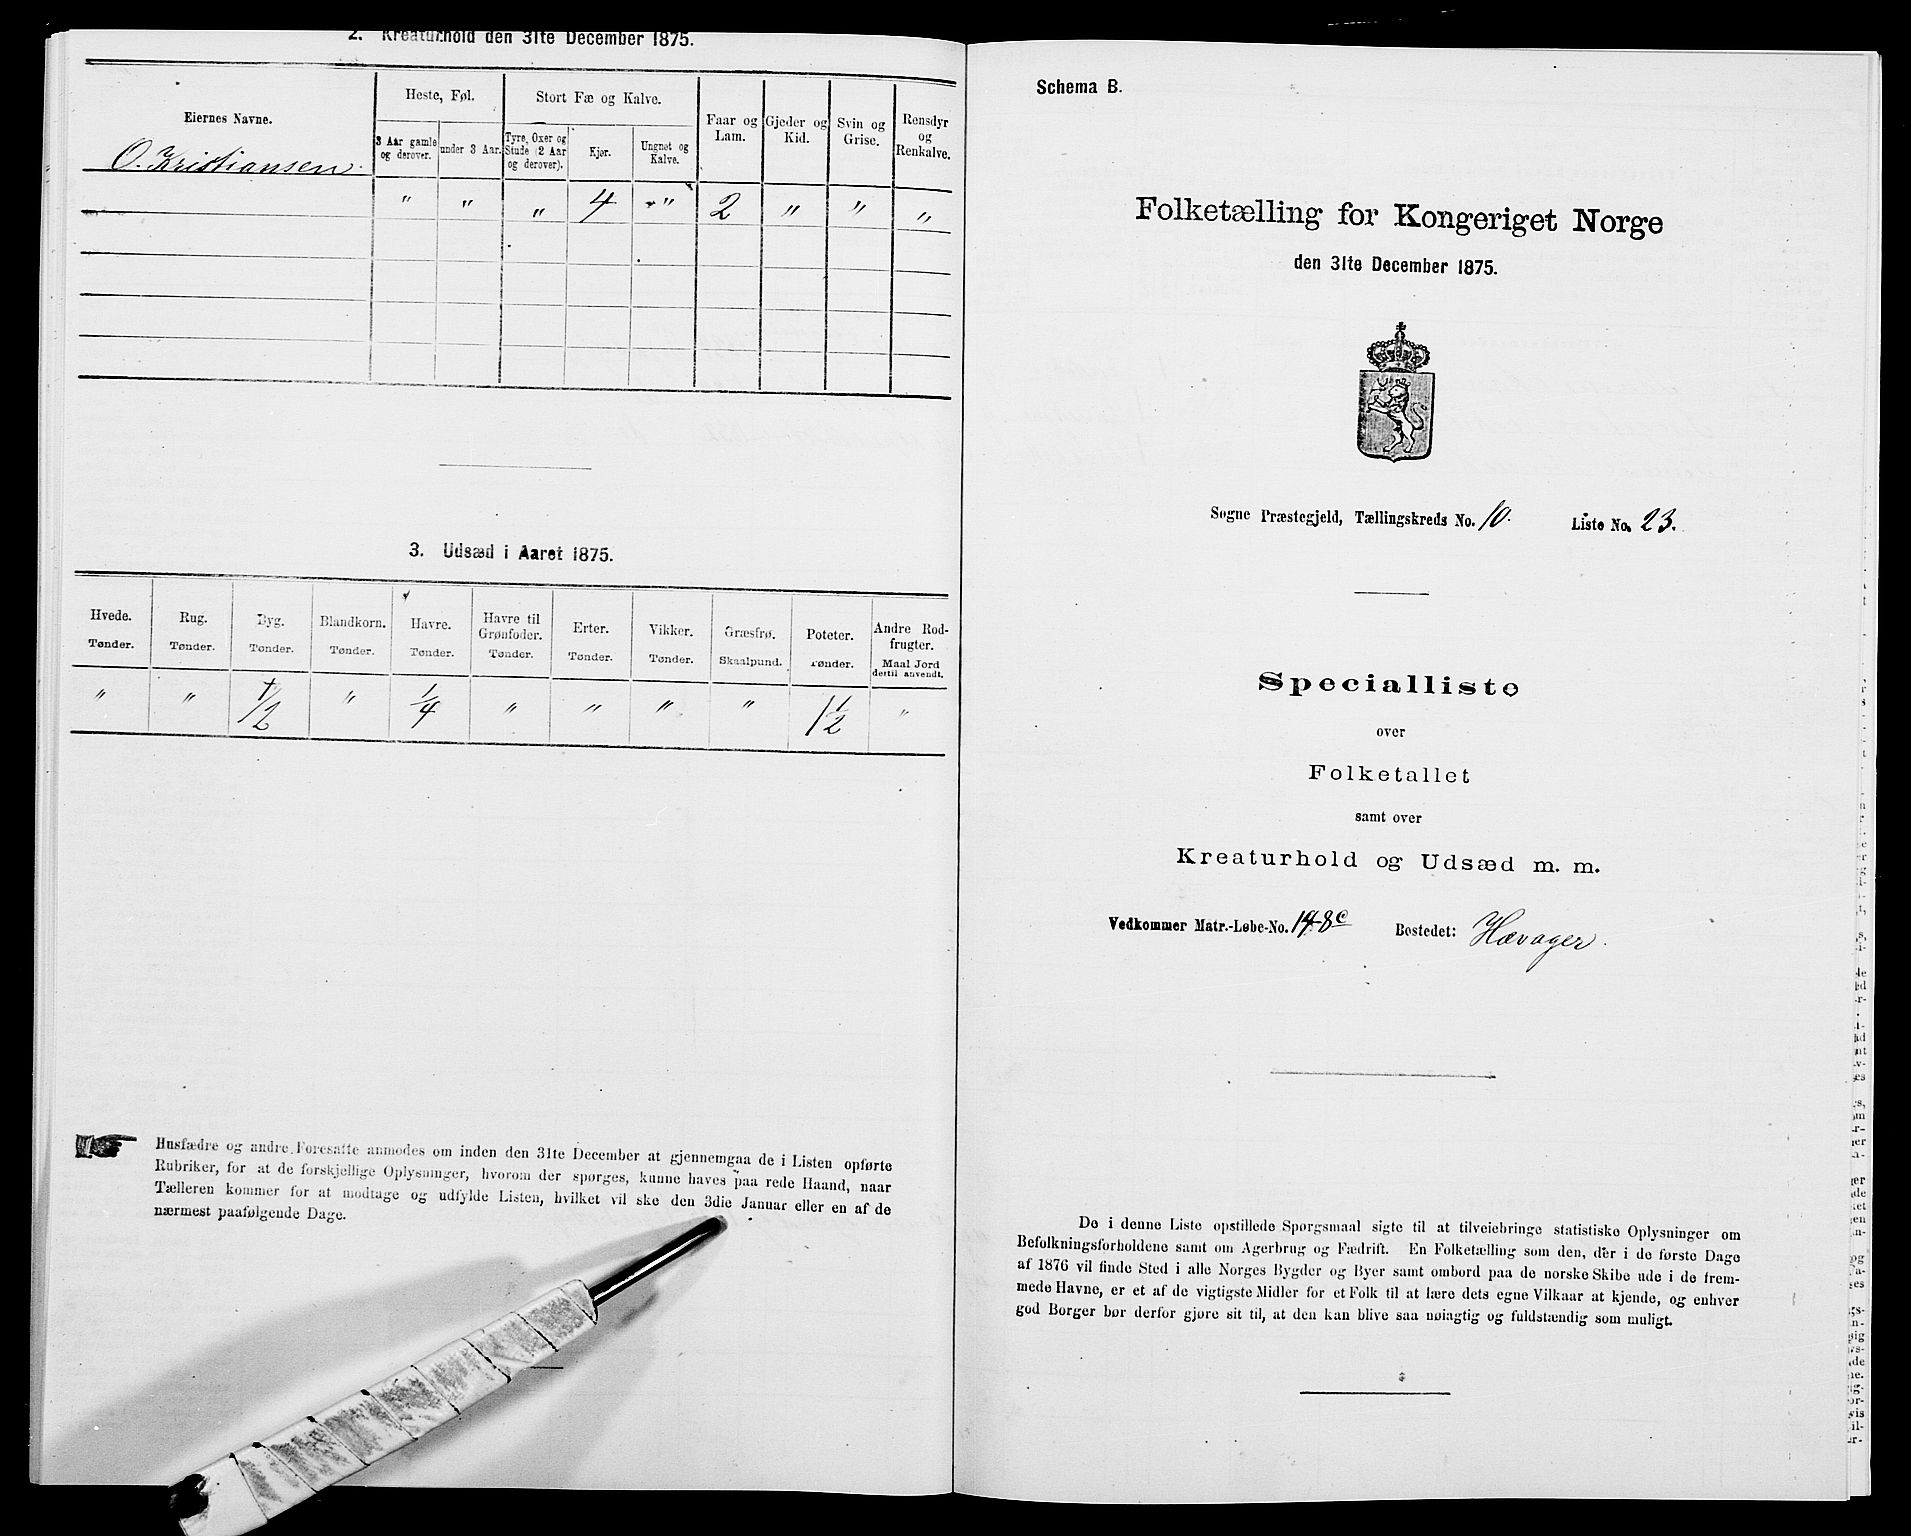 2. Kreaturhold den 31te December 1875.
Eiernes Navne.
Heste, Føl.
Stort Fæ og Kalve.
Faar og Lam.
Gjeder og Kid.
Svin og Grise.
Rensdyr og Renkalve.
3 Aar gamle og derover.
under 3 Aar.
Tyre, Oxer og Stude (2 Aar og derover).
Kjør.
Ungnet og Kalve.
O. Kristiansen.
" " " 4 " 2 " " "
3. Udsæd i Aaret 1875.
Hvede. Rug. Byg. Blandkorn. Havre. Havre til Grønfoder. Erter. Vikker. Græsfrø. Poteter. Andre Rodfrugter.
Tønder. Tønder. Tønder. Tønder. Tønder. Tønder. Tønder. Tønder. Skaalpund. Tønder. Maal Jord dertil anvendt.
" " 1/2 " 1/4 " " " " 1 1/2 "
Husfædre og andre Foresatte anmodes om inden den 31te December at gjennemgaa de i Listen opførte
Rubriker, for at de forskjellige Oplysninger, hvorom der spørges, kunne haves paa rede Haand, naar
Tælleren kommer for at modtage og udfylde Listen, hvilket vil ske den 3die Januar eller en af de
nærmest paafølgende Dage.
Schema B.
Folketælling for Kongeriget Norge
den 31te December 1875.
Søgne Præstegjeld, Tællingskreds No. 10. Liste No. 23.
Specialliste
over
Folketallet
samt over
Kreaturhold og Udsæd m. m.
Vedkommer Matr.-Løbe-No. 148c Bostedet: Hævager.
De i denne Liste opstillede Spørgsmaal sigte til at tilveiebringe statistiske Oplysninger om
Befolkningsforholdene samt om Agerbrug og Fædrift. En Folketælling som den, der i de første Dage
af 1876 vil finde Sted i alle Norges Bygder og Byer samt ombord paa de norske Skibe ude i de frem-
mede Havne, er et af de vigtigste Midler for et Folk til at lære dets egne Vilkaar at kjende, og enhver
god Borger bør derfor gjøre sit til, at den kan blive saa nøiagtig og fuldstændig som muligt.